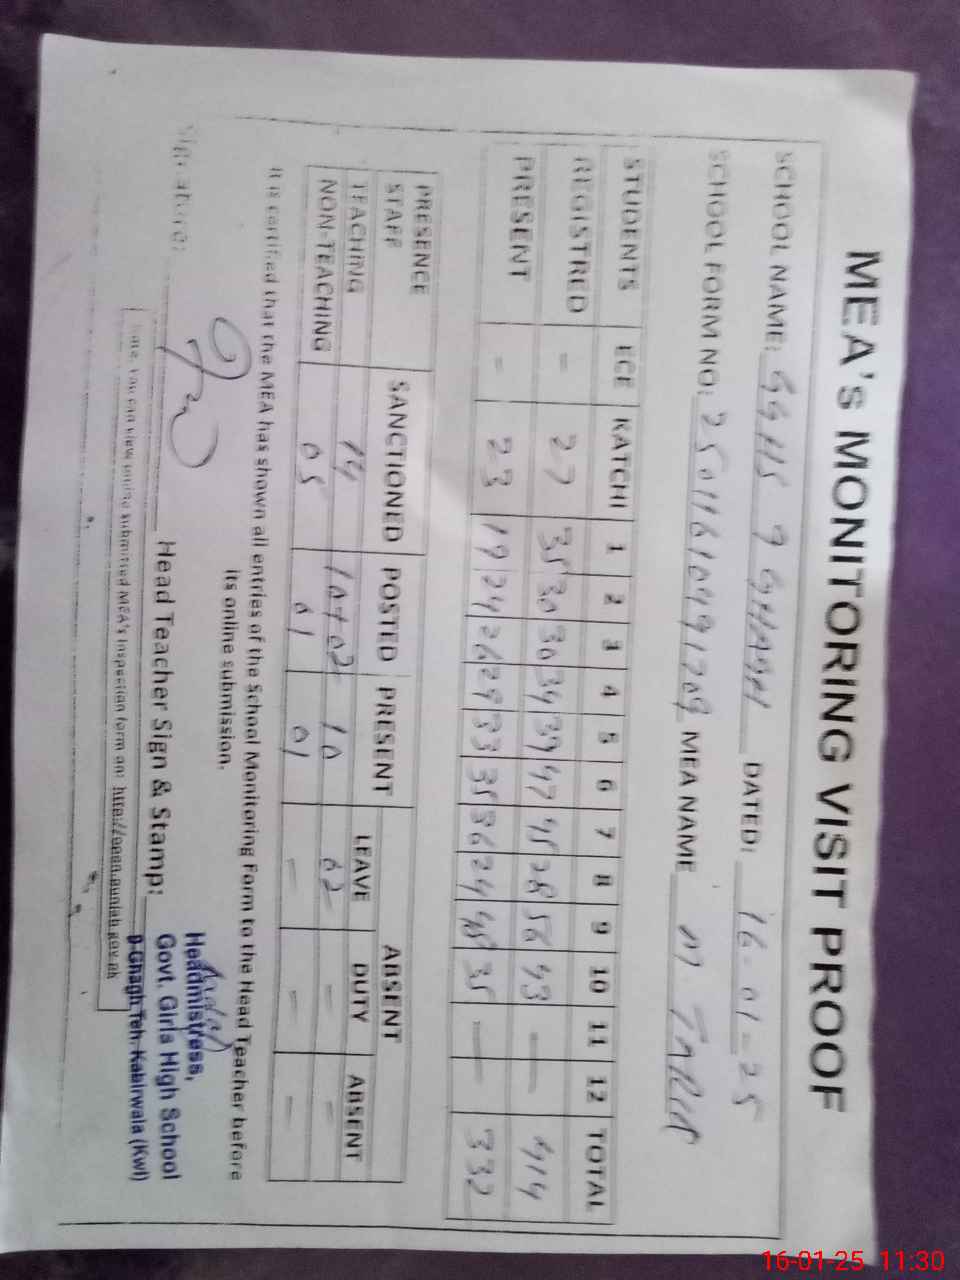 MEA's MONITORING VISIT PROOF
SCHOOL NAME: GGHS 9 GHAGH DATED: 16-01-25
SCHOOL FORM NO: MEA NAME M TARIQ
STUDENTS ECE KATCHI 1 2 3 4 5 6 7 8 9 10 11 12 TOTAL
REGISTRED - 27 35 30 30 34 39 47 45 28 56 43 - 414
PRESENT - 23 19 24 26 29 33 35 36 24 48 35 - 332
PRESENCE ABSENT
STAFF SANCTIONED POSTED PRESENT LEAVE DUTY ABSENT
TEACHING 14 10+02 10 02 - -
NON-TEACHING 05 01 01 - - -
It is certified that the MEA has shown all entries of the School Monitoring Form to the Head Teacher before
its online submission.
Signature: Head Teacher Sign & Stamp:
Headmistress,
Govt. Girls High School
9-Ghagh Teh. Kabirwala (Kwl)
Note: You can view online submitted MEA's inspection form on: http://open.punjab.gov.pk
16-01-25 11:30